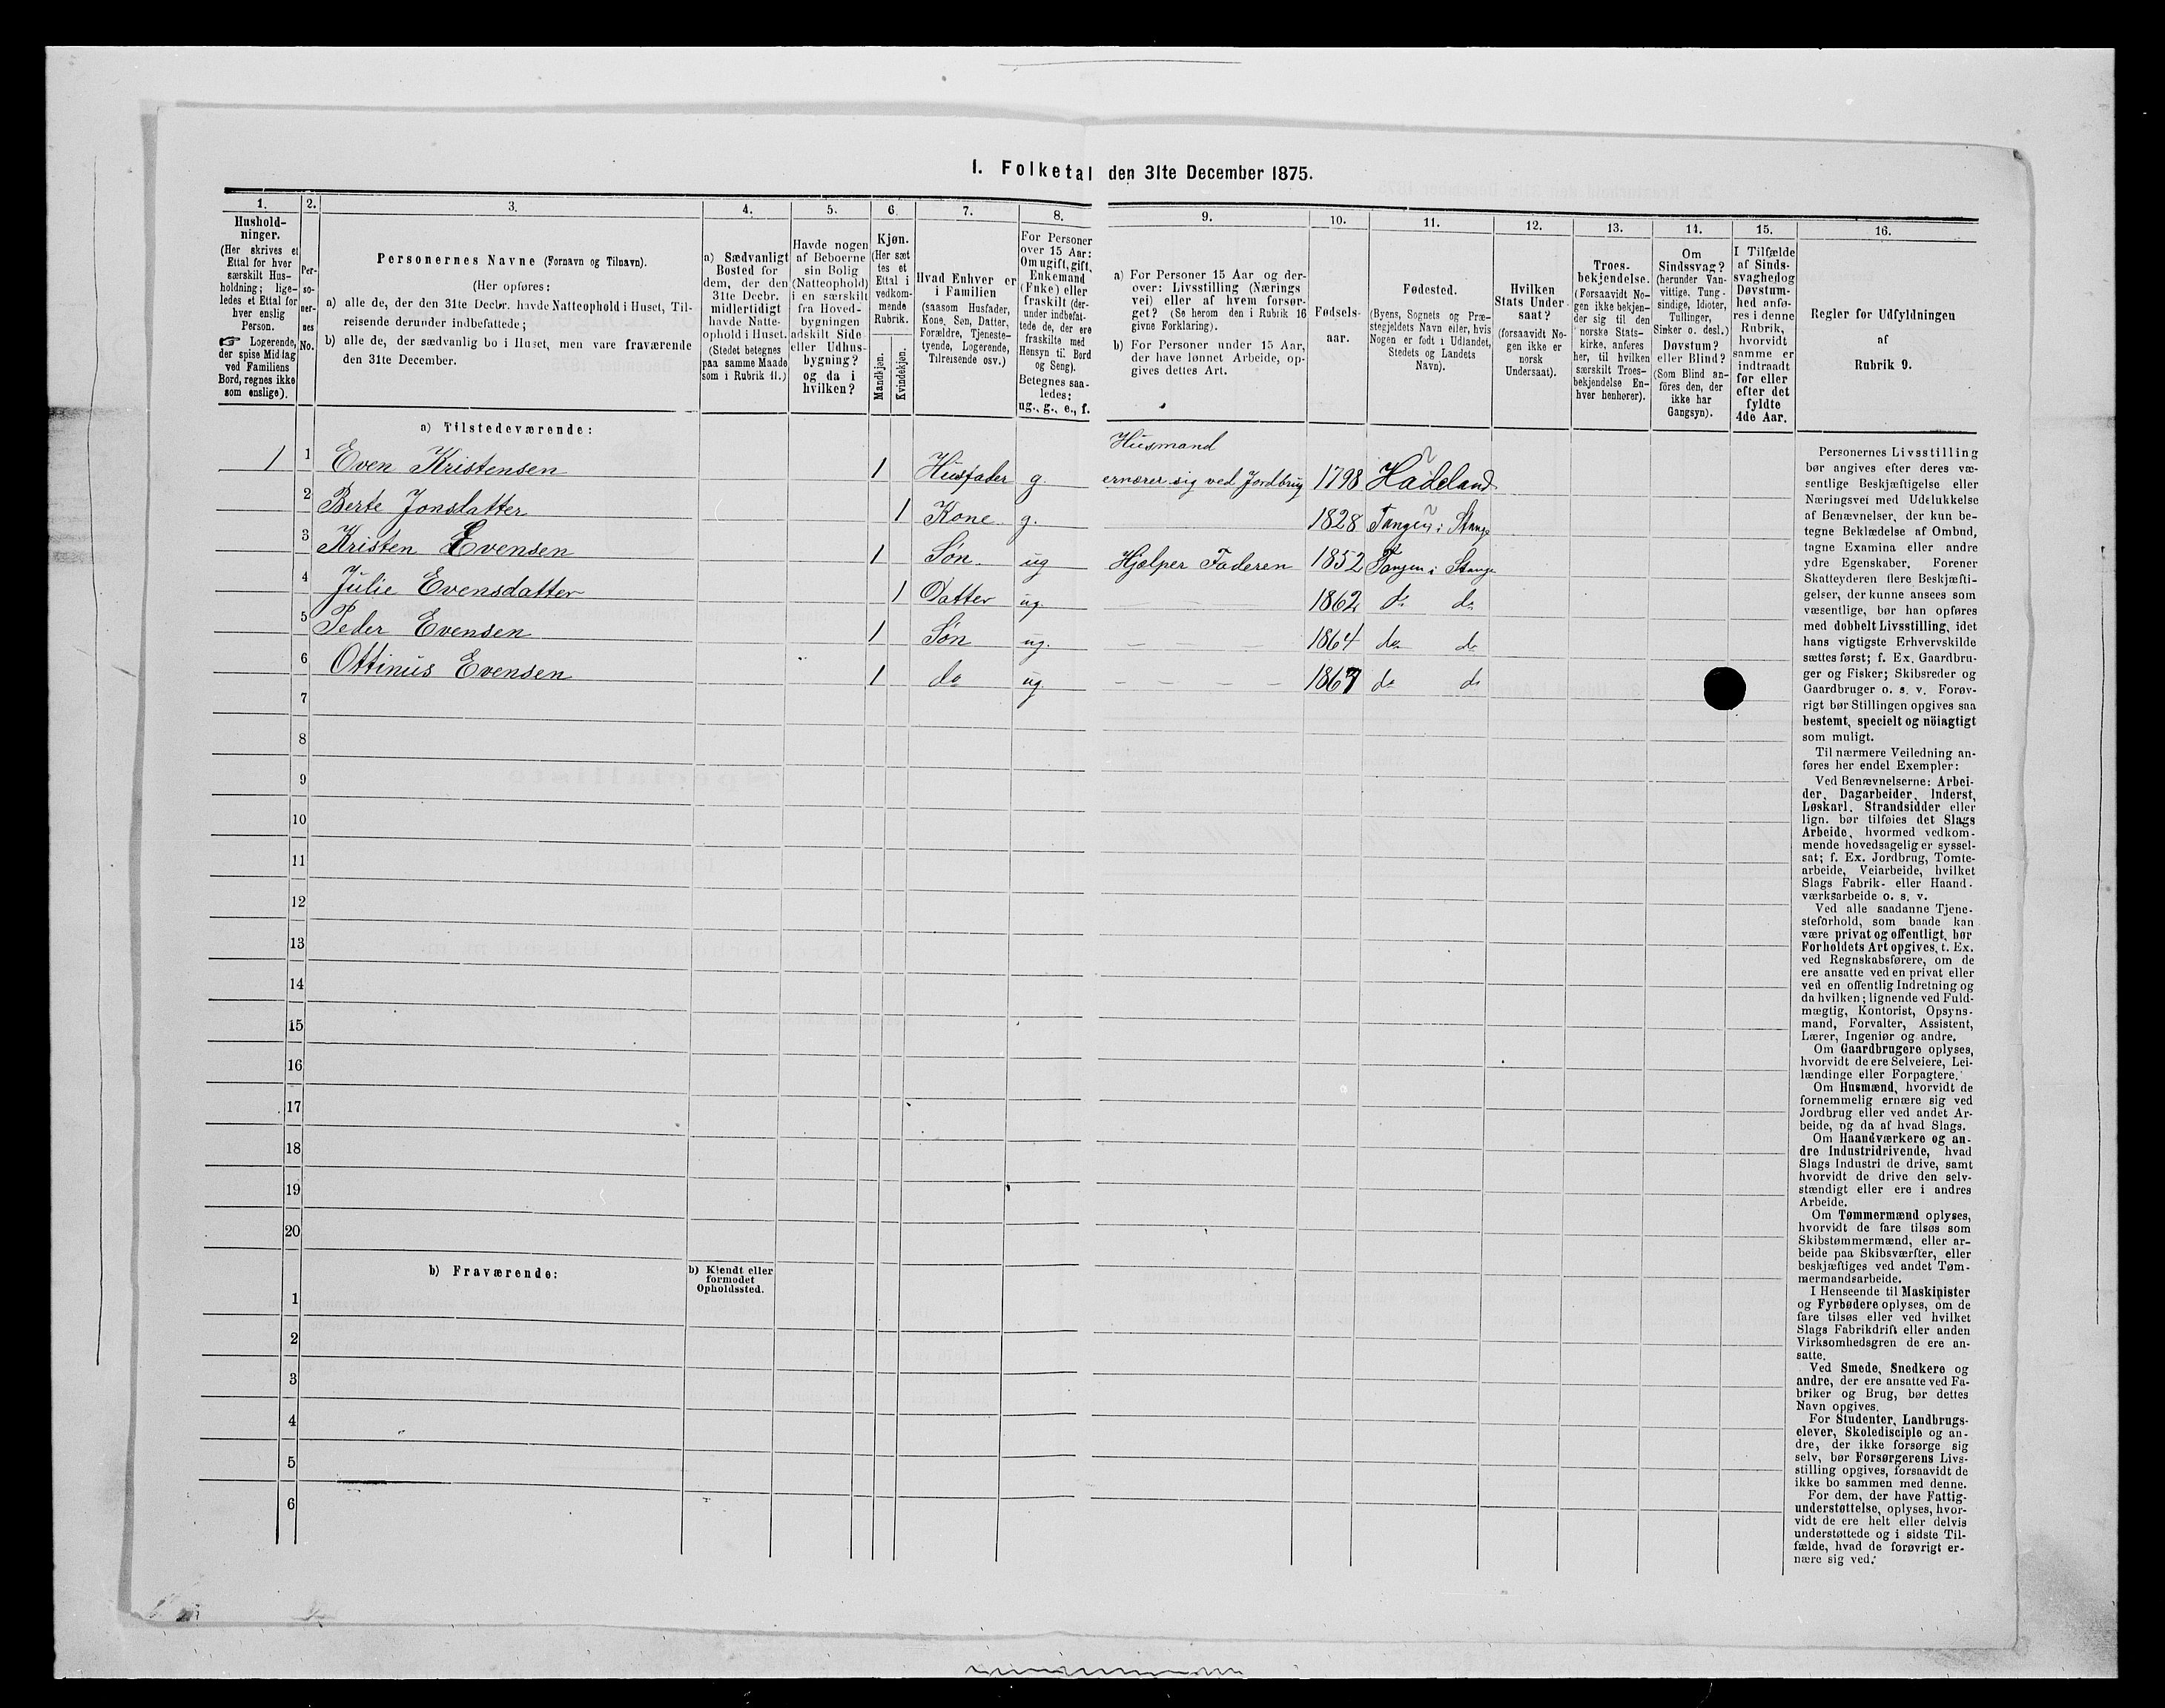 I. Folketal den 31te December 1875.
1.
Hushold-
ninger.
(Her skrives et
Ettal for hver
særskilt Hus-
holdning; lige-
ledes et Ettal for
hver enslig
Person.
☞ Logerende,
der spise Middag
ved Familiens
Bord, regnes ikke
som enslige).
2.
Per-
so-
ner-
nes
No.
3.
Personernes Navne (Fornavn og Tilnavn).
(Her opføres:
a) alle de, der den 31te Decbr. havde Natteophold i Huset, Til-
reisende derunder indbefattede;
b) alle de, der sædvanlig bo i Huset, men vare fraværende
den 31te December.
4.
a) Sædvanligt
Bosted for
dem, der den
31te Decbr.
midlertidigt
havde Natte-
ophold i Huset.
(Stedet betegnes
paa samme Maade
som i Rubrik 11.)
5.
Havde nogen
af Beboerne
sin Bolig
(Natteophold)
i en særskilt
fra Hoved-
bygningen
adskilt Side
eller Udhus-
bygning?
og da i
hvilken?
6.
Kjøn.
(Her sæt
tes et
Ettal i
vedkom-
mende
Rubrik.
Mandkjøn.
Kvindekjøn.
7.
Hvad Enhver er
i Familien
(saasom Husfader,
Kone, Søn, Datter,
Forældre, Tjeneste-
tyende, Logerende,
Tilreisende osv.)
8.
For Personer
over 15 Aar:
Om ugift, gift,
Enkemand
(Enke) eller
fraskilt (der-
under indbefat-
tede de, der ere
fraskilte med
Hensyn til Bord
og Seng).
Betegnes saa-
ledes:
ug., g., e., f.
9.
a) For Personer 15 Aar og der-
over: Livsstilling (Nærings
vei) eller af hvem forsør-
get? (Se herom den i Rubrik 16
givne Forklaring).
b) For Personer under 15 Aar,
der have lønnet Arbeide, op-
gives dettes Art.
10.
Fødsels-
aar.
11.
Fødested.
(Byens, Sognets og Præ-
stegjeldets Navn eller, hvis
Nogen er født i Udlandet,
Stedets og Landets
Navn).
12.
Hvilken
Stats Under
saat?
(forsaavidt No-
gen ikke er
norsk
Undersaat).
13.
Troes-
bekjendelse.
(Forsaavidt No-
gen ikke bekjen-
der sig til den
norske Stats-
kirke, anføres
her, til hvilken
særskilt Troes-
bekjendelse En-
hver henhører).
14.
Om
Sindssvag?
(herunder Van-
vittige, Tung-
sindige, Idioter,
Tullinger,
Sinker o. desl.)
Døvstum?
eller Blind?
(Som Blind an-
føres den, der
ikke har
Gangsyn).
15.
I Tilfælde
af Sinds-
svaghed og
Døvstum-
hed anfø-
res i denne
Rubrik,
hvorvidt
samme er
indtraadt
før eller
efter det
fyldte
4de Aar.
16.
Regler for Udfyldningen
af
Rubrik 9.
a) Tilstedeværende:
Husmand
1 1 Even Kristensen 1 Husfader g. ernærer sig ved Jordbrug 1798 Hadeland
2 Berte Jonsdatter 1 Kone g. 1828 Tangen i Stange
3 Kristen Evensen 1 Søn ug Hjælper Faderen 1852 Tangen i Stange
4 Julie Evensdatter 1 Datter ug. 1862 do do
5 Peder Evensen 1 Søn ug. — — 1864 do do
6 Ottinus Evensen 1 do ug. — — — — 1867 do do
7
8
9
10
11
12
13
14
15
16
17
18
19
20
b) Fraværende:
b) Kjendt eller
formodet
Opholdssted.
1
2
3
4
5
6
Personernes Livsstilling
bør angives efter deres væ-
sentlige Beskjæftigelse eller
Næringsvei med Udelukkelse
af Benævnelser, der kun be-
tegne Beklædelse af Ombud,
tagne Examina eller andre
ydre Egenskaber. Forener
Skatteyderen flere Beskjæfti-
gelser, der kunne ansees som
væsentlige, bør han opføres
med dobbelt Livsstilling, idet
hans vigtigste Erhvervskilde
sættes først; f. Ex. Gaardbru-
ger og Fisker; Skibsreder og
Gaardbruger o. s. v. Forøv-
rigt bør Stillingen opgives saa
bestemt, specielt og nöiagtigt
som muligt.
Til nærmere Veiledning an-
føres her endel Exempler:
Ved Benævnelserne: Arbei-
der, Dagarbeider, Inderst,
Løskarl, Strandsidder eller
lign. bør tilføies det Slags
Arbeide, hvormed vedkom-
mende hovedsagelig er syssel-
sat; f. Ex. Jordbrug, Tomte-
arbeide, Veiarbeide, hvilket
Slags Fabrik- eller Haand-
værksarbeide o. s. v.
Ved alle saadanne Tjene-
steforhold, som baade kan
være privat og offentligt, bør
Forholdets Art opgives, t. Ex.
ved Regnskabsførere, om de
ere ansatte ved en privat eller
ved en offentlig Indretning og
da hvilken; lignende ved Fuld-
mægtig, Kontorist, Opsyns-
mand, Forvalter, Assistent,
Lærer, Ingeniør og andre.
Om Gaardbrugere oplyses,
hvorvidt de ere Selveiere, Lei-
lændinge eller Forpagtere.
Om Husmænd, hvorvidt de
fornemmelig ernære sig ved
Jordbrug eller ved andet Ar-
beide, og da af hvad Slags.
Om Haandværkere og an-
dre Industridrivende, hvad
Slags Industri de drive, samt
hvorvidt de drive den selv-
stændigt eller ere i andres
Arbeide.
Om Tømmermænd oplyses,
hvorvidt de fare tilsøs som
Skibstømmermænd, eller ar-
beide paa Skibsværfter, eller
beskjæftiges ved andet Tøm-
mermandsarbeide.
I Henseende til Maskinister
og Fyrbødere oplyses, om de
fare tilsøs eller ved hvilket
Slags Fabrikdrift eller anden
Virksomhedsgren de ere an-
satte.
Ved Smede, Snedkere og
andre, der ere ansatte ved Fa-
briker og Brug, bør dettes
Navn opgives.
For Studenter, Landbrugs-
elever, Skoledisciple og an-
dre, der ikke forsørge sig
selv, bør Forsørgerens Livs-
stilling opgives, forsaavidt de
ikke bo sammen med denne.
For dem, der have Fattig-
understøttelse, oplyses, hvor-
vidt de ere helt eller delvis
understøttede og i sidste Til-
fælde, hvad de forøvrigt er-
nære sig ved.